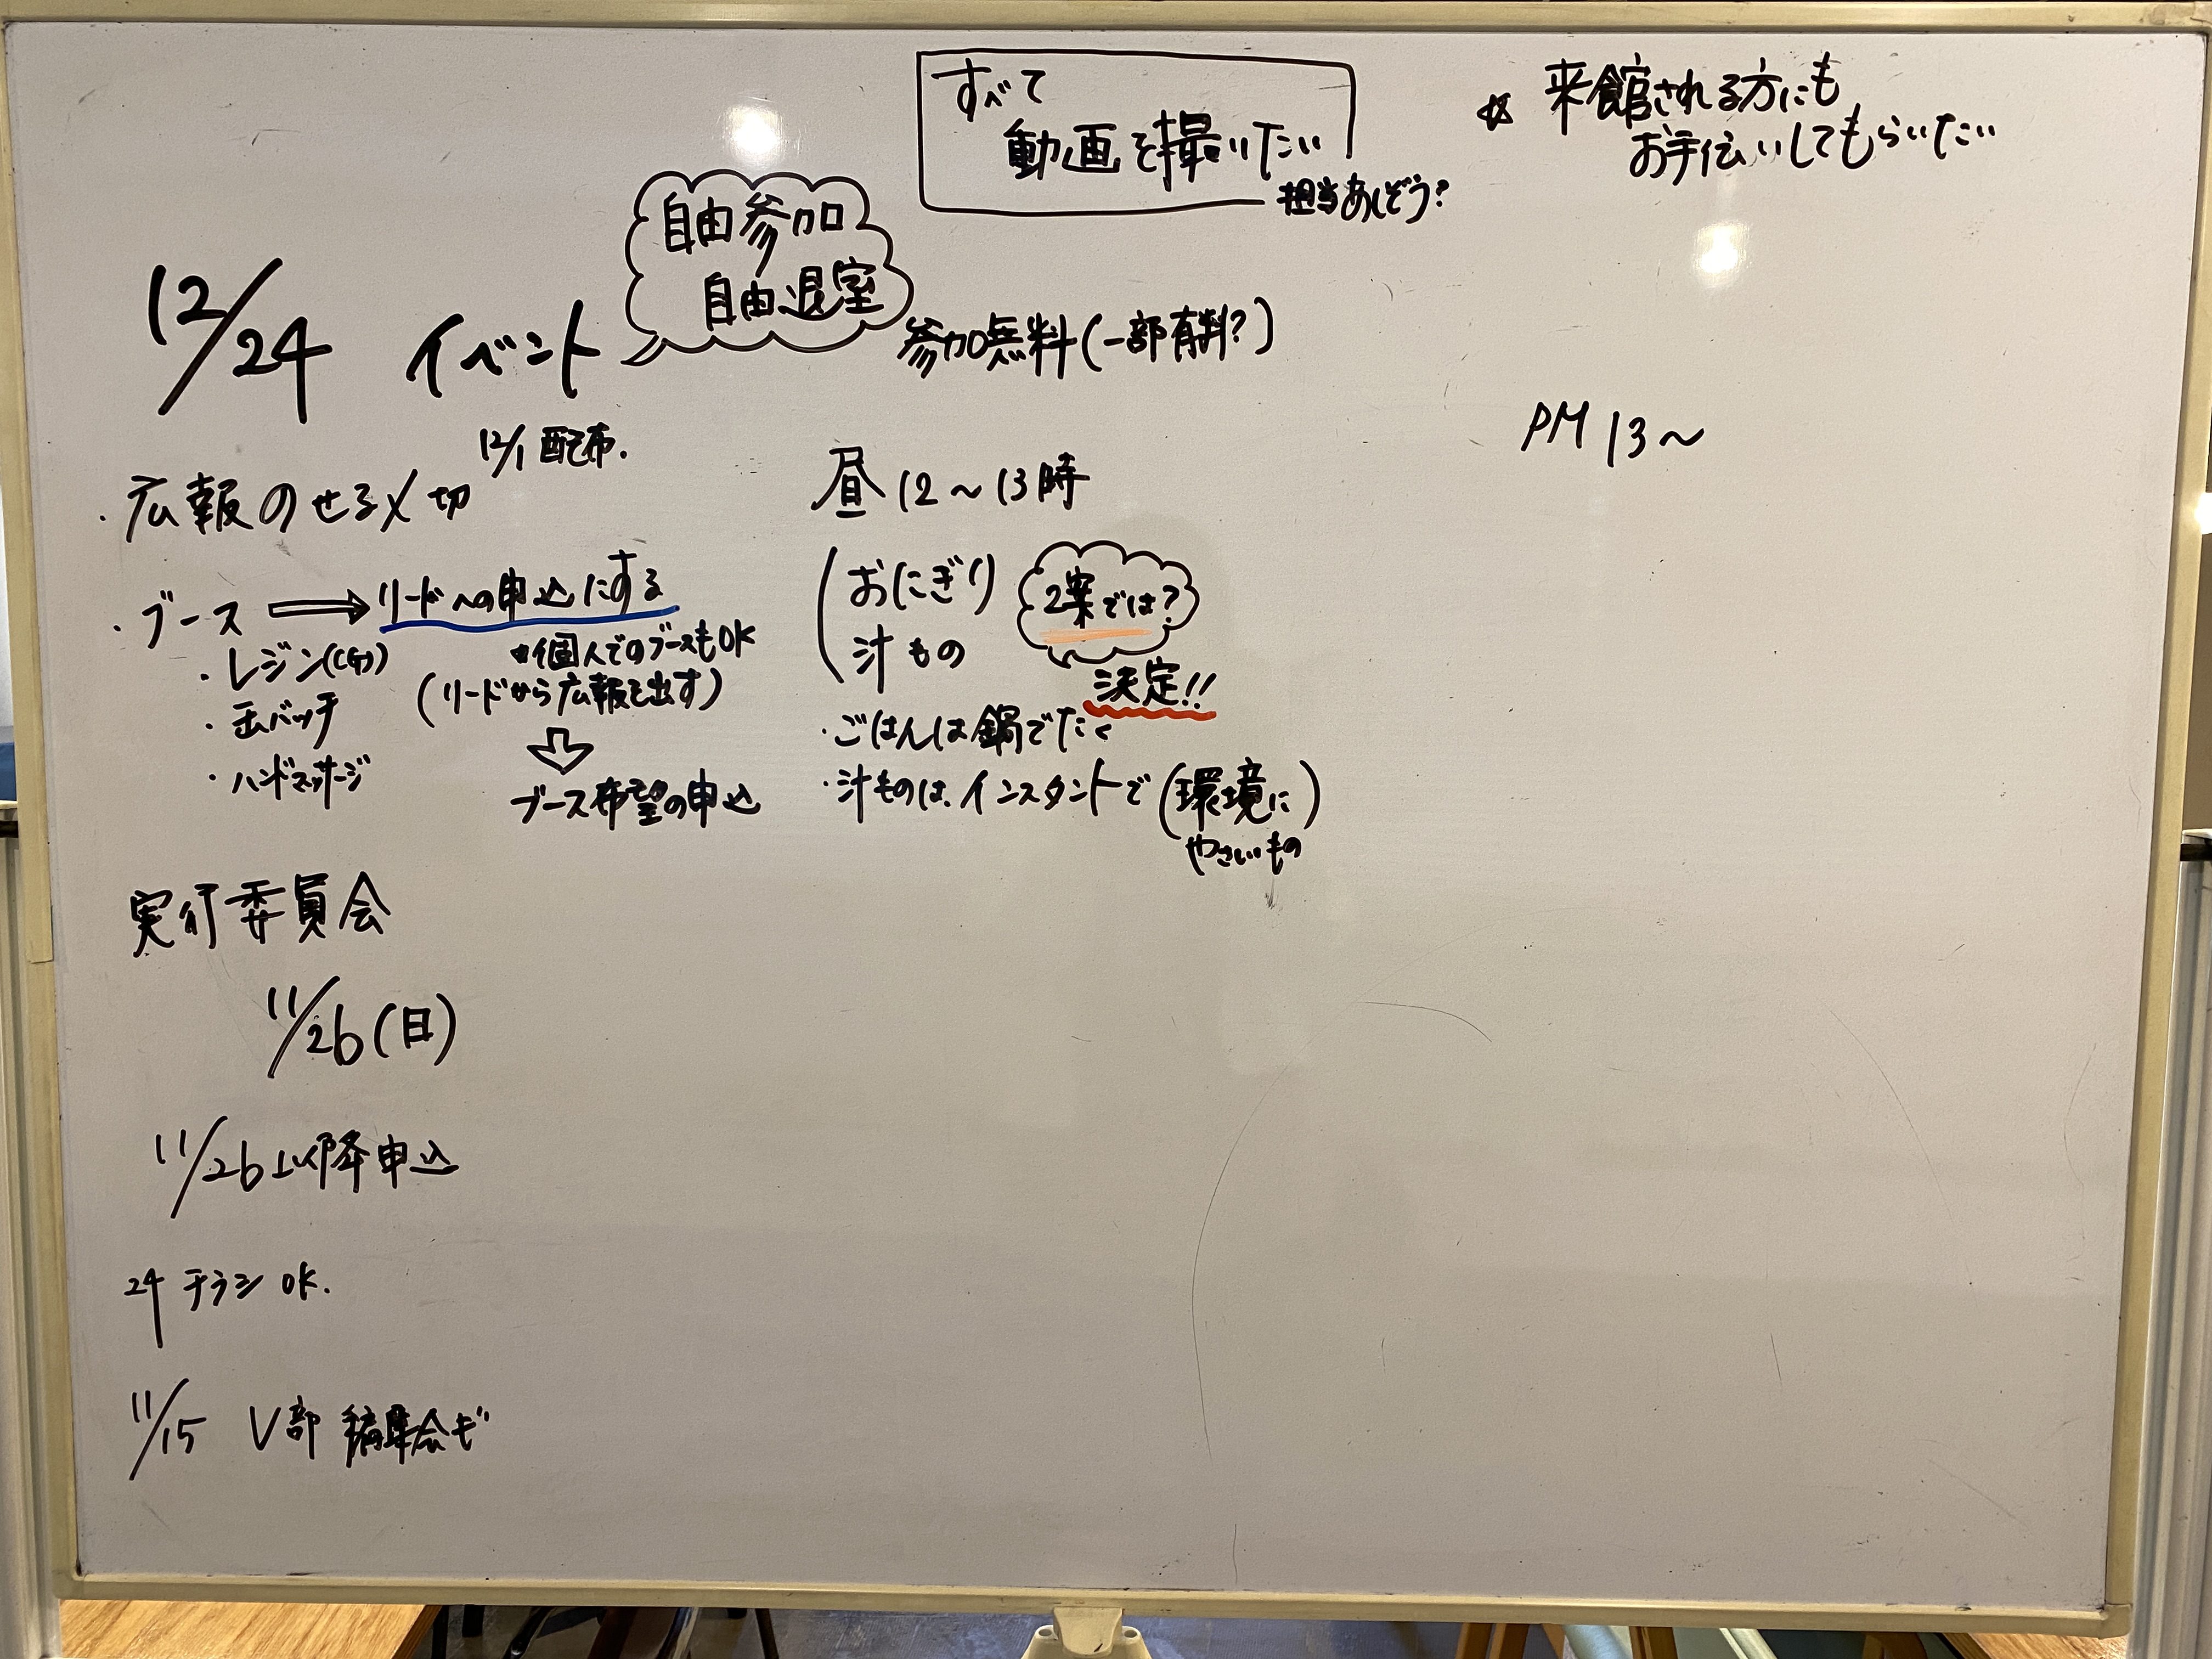 すべて
動画を撮りたい
担当あしどう?
☆ 来館される方にも
お手伝いしてもらいたい
自由参加
自由退室
12/24 イベント
参加無料(一部有料?)
12/1 配布.
・広報のせる〆切
・ブース ⇒ リードへの申込にする
・レジン
・缶バッチ
・ハンドマッサージ
*個人でのブースもOK
(リードから広報を出す)
⇩
ブース希望の申込
昼 12〜13時
おにぎり
汁もの
2案では?
決定!!
・ごはんは鍋でたく
・汁ものは、インスタントで(環境に)
やさしいもの
PM 13〜
実行委員会
11/26(日)
11/26以降申込
24 チラシ OK.
11/15 V部 編集会ギ